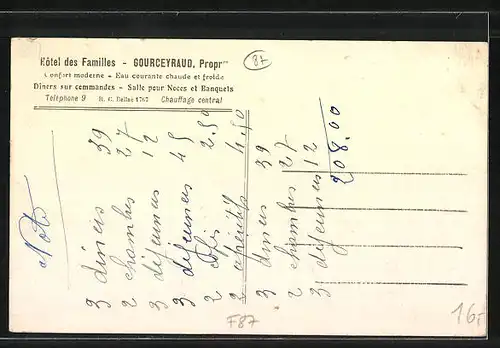 Hôtel des Familles - GOURCEYRAUD, Propr
Confort moderne - Eau courante chaude et froide
Dîners sur commandes - Salle pour Noces et Banquets
Téléphone 9 R. C. Bellac 1767 Chauffage central
87
Note
3 diners 39
2 chambres 27
3 déjeuners 12
3 déjeuners 45
2 cafés 2.50
2 apéritifs 4.50
3 diners 39
2 chambres 27
3 déjeuners 12
208.00
F87
16,-